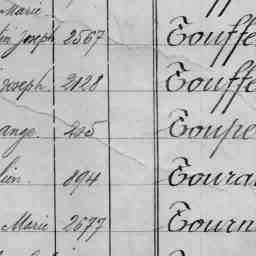 Marie.
lin Joseph 2567 Touffe
Joseph 2128 Touffe
ange 205 Toupe
lien 894 Toura
Marie 2677 Tourn